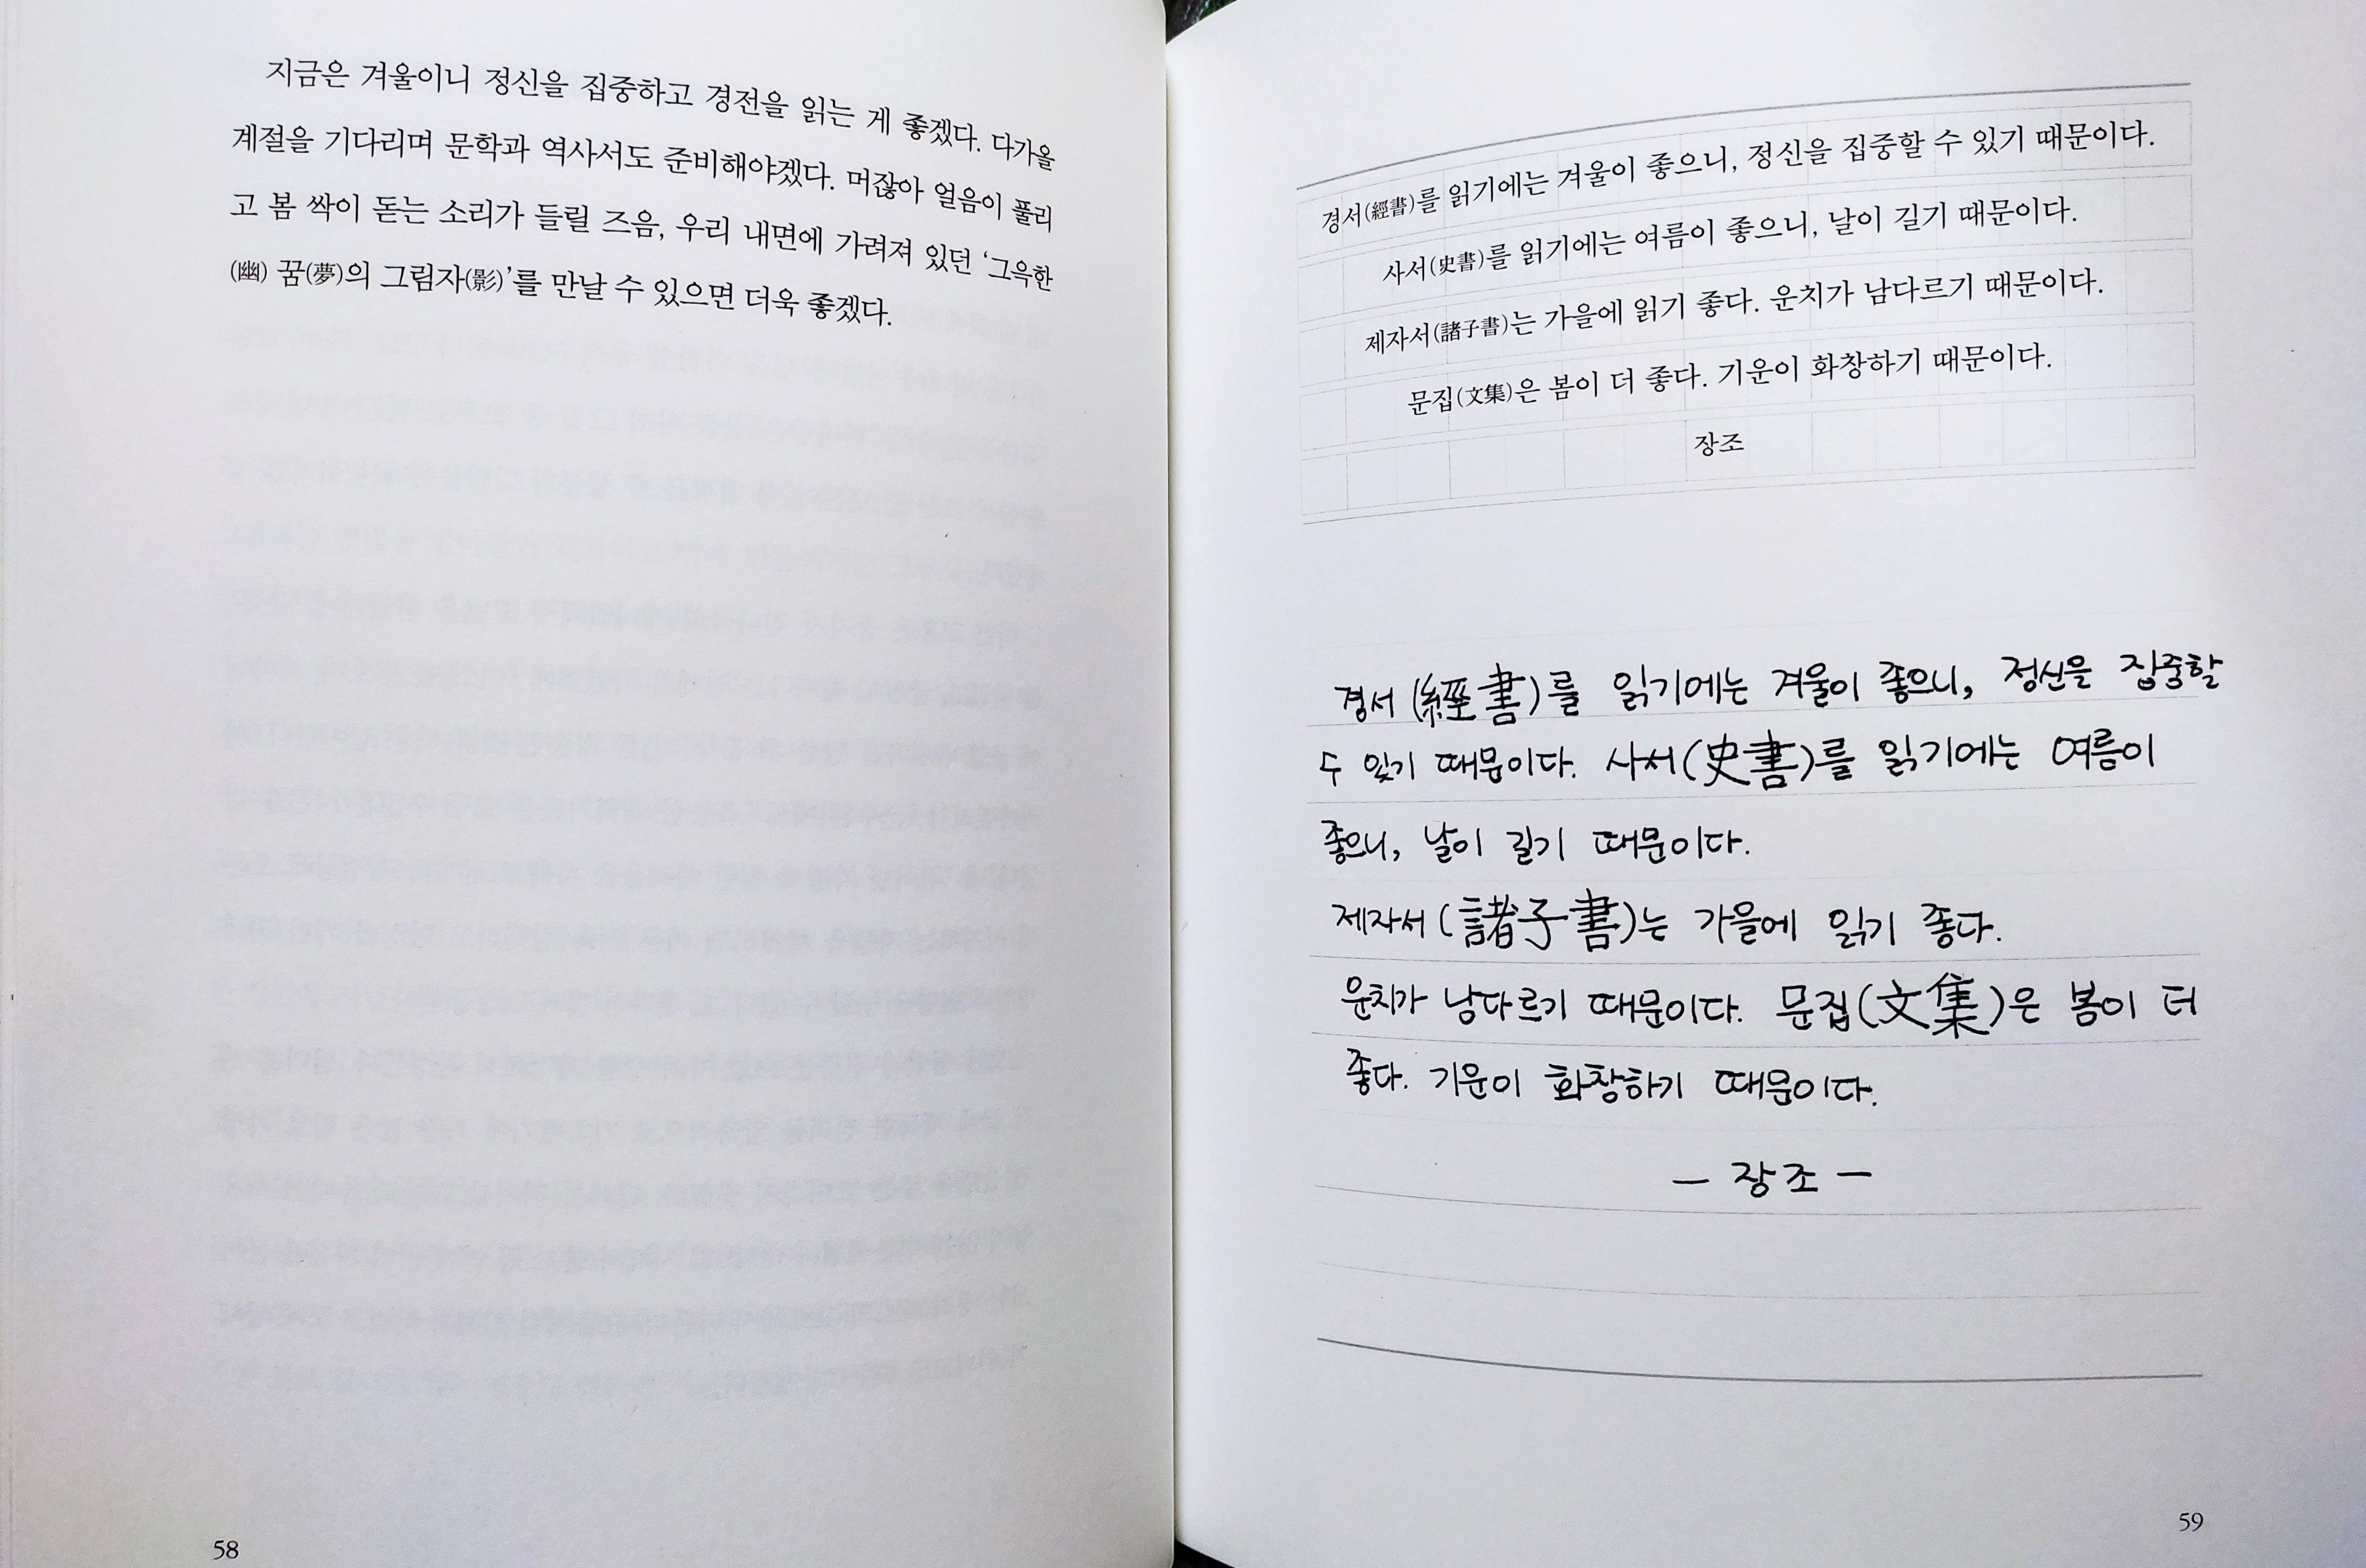 지금은 겨울이니 정신을 집중하고 경전을 읽는 게 좋겠다. 다가올
계절을 기다리며 문학과 역사서도 준비해야겠다. 머잖아 얼음이 풀리
고 봄 싹이 돋는 소리가 들릴 즈음, 우리 내면에 가려져 있던 ‘그윽한
(幽) 꿈(夢)의 그림자(影)’를 만날 수 있으면 더욱 좋겠다.
58
경서(經書)를 읽기에는 겨울이 좋으니, 정신을 집중할 수 있기 때문이다.
사서(史書)를 읽기에는 여름이 좋으니, 날이 길기 때문이다.
제자서(諸子書)는 가을에 읽기 좋다. 운치가 남다르기 때문이다.
문집(文集)은 봄이 더 좋다. 기운이 화창하기 때문이다.
장조
경서 (經書)를 읽기에는 겨울이 좋으니, 정신을 집중할
수 있기 때문이다. 사서(史書)를 읽기에는 여름이
좋으니, 날이 길기 때문이다.
제자서 (諸子書)는 가을에 읽기 좋다.
운치가 남다르기 때문이다. 문집(文集)은 봄이 더
좋다. 기운이 화창하기 때문이다.
— 장조 —
59